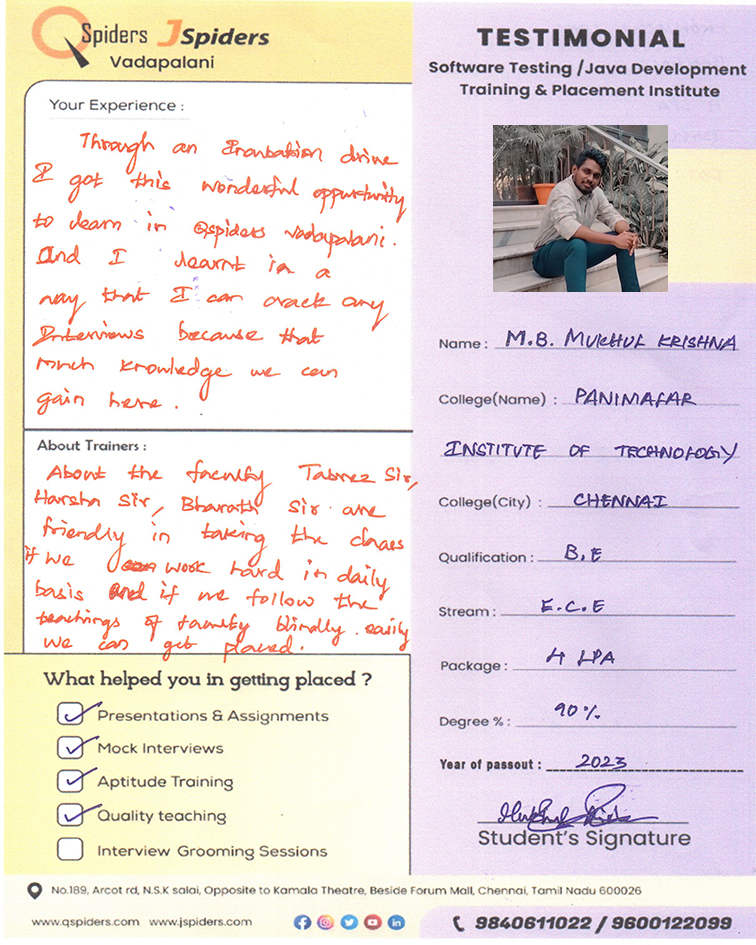 QSpiders JSpiders
Vadapalani
Your Experience :
Through an Incubation drive
I got this wonderful oppurtunity
to learn in Qspiders vadapalani.
And I learnt in a
way that I can crack any
Interviews because that
much knowledge we can
gain here.
About Trainers :
About the faculty Tabrez Sir,
Harsha Sir, Bharath Sir are
friendly in taking the classes
if we work hard in daily
basis and if we follow the
teachings of faculty blindly. easily
we can get placed.
What helped you in getting placed ?
Presentations & Assignments
Mock Interviews
Aptitude Training
Quality teaching
Interview Grooming Sessions
TESTIMONIAL
Software Testing /Java Development
Training & Placement Institute
Name : M.B. MUKHUL KRISHNA
College(Name) : PANIMALAR
INSTITUTE OF TECHNOLOGY
College(City) : CHENNAI
Qualification : B.E
Stream : E.C.E
Package : 4 LPA
Degree % : 90%
Year of passout : 2023
Student's Signature
No.189, Arcot rd, N.S.K salai, Opposite to Kamala Theatre, Beside Forum Mall, Chennai, Tamil Nadu 600026
www.qspiders.com www.jspiders.com
9840611022 / 9600122099